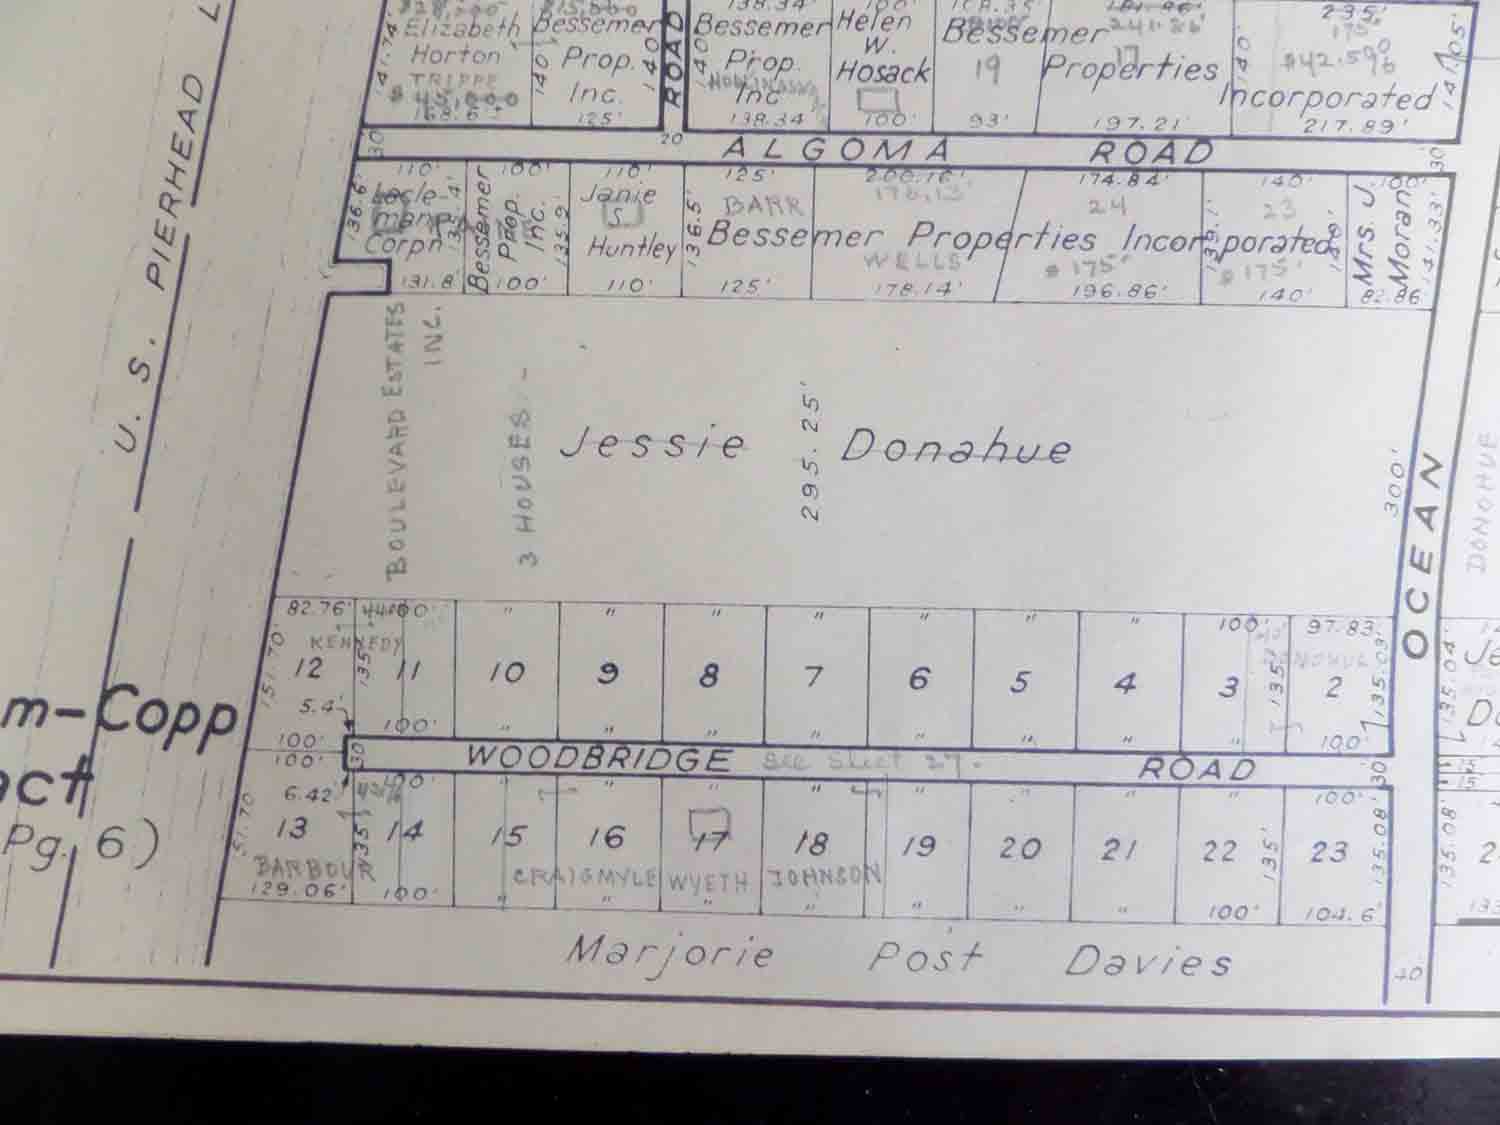 U. S. PIERHEAD L
141.74'
Elizabeth
Horton
TRIPPE
$ 45,000
Bessemer
Prop.
Inc.
125'
140'
140'
ROAD
140'
138.34'
Bessemer
Prop.
Inc
138.34'
Helen
W.
Hosack
100'
Bessemer
Properties
Incorporated
19
93'
241.86'
17
197.21'
140'
235'
175'
$42.590
217.89'
141.05'
30'
20
ALGOMA ROAD
30'
136.6'
110'
Corpn
135.4'
131.8'
100'
Bessemer
Prop.
Inc.
100'
135.9'
110'
Janie
S.
Huntley
110'
136.5'
125'
BARR
125'
200.16'
178.13'
Bessemer Properties Incorporated
WELLS
178.14'
174.84'
24
$ 175'
196.86'
135.1'
140'
23
$ 175'
140'
140'
100'
Mrs. J
Moran
82.86
141.33'
BOULEVARD ESTATES
INC.
3 HOUSES -
Jessie Donahue
295.25'
300'
OCEAN
DONOHUE
82.76' 44' 100' " " " " " " " 100' 97.83'
KENNEDY
151.70'
135'
12 11 10 9 8 7 6 5 4 3 2
135'
135.03'
135.04'
5.4'
100' 100' " " " " " " " " 100'
m-Copp
act
Pg. 6)
100'
30
WOODBRIDGE ROAD
See Sheet 27.
30'
15'
15'
6.42' 100' " " " " " " " " 100'
151.70
135'
13 14 15 16 17 18 19 20 21 22 23
135'
135.08'
135.08'
2
BARBOUR CRAIGMYLE WYETH JOHNSON
129.06' 100' " " " " " " " 100' 104.6'
133
Marjorie Post Davies
40'